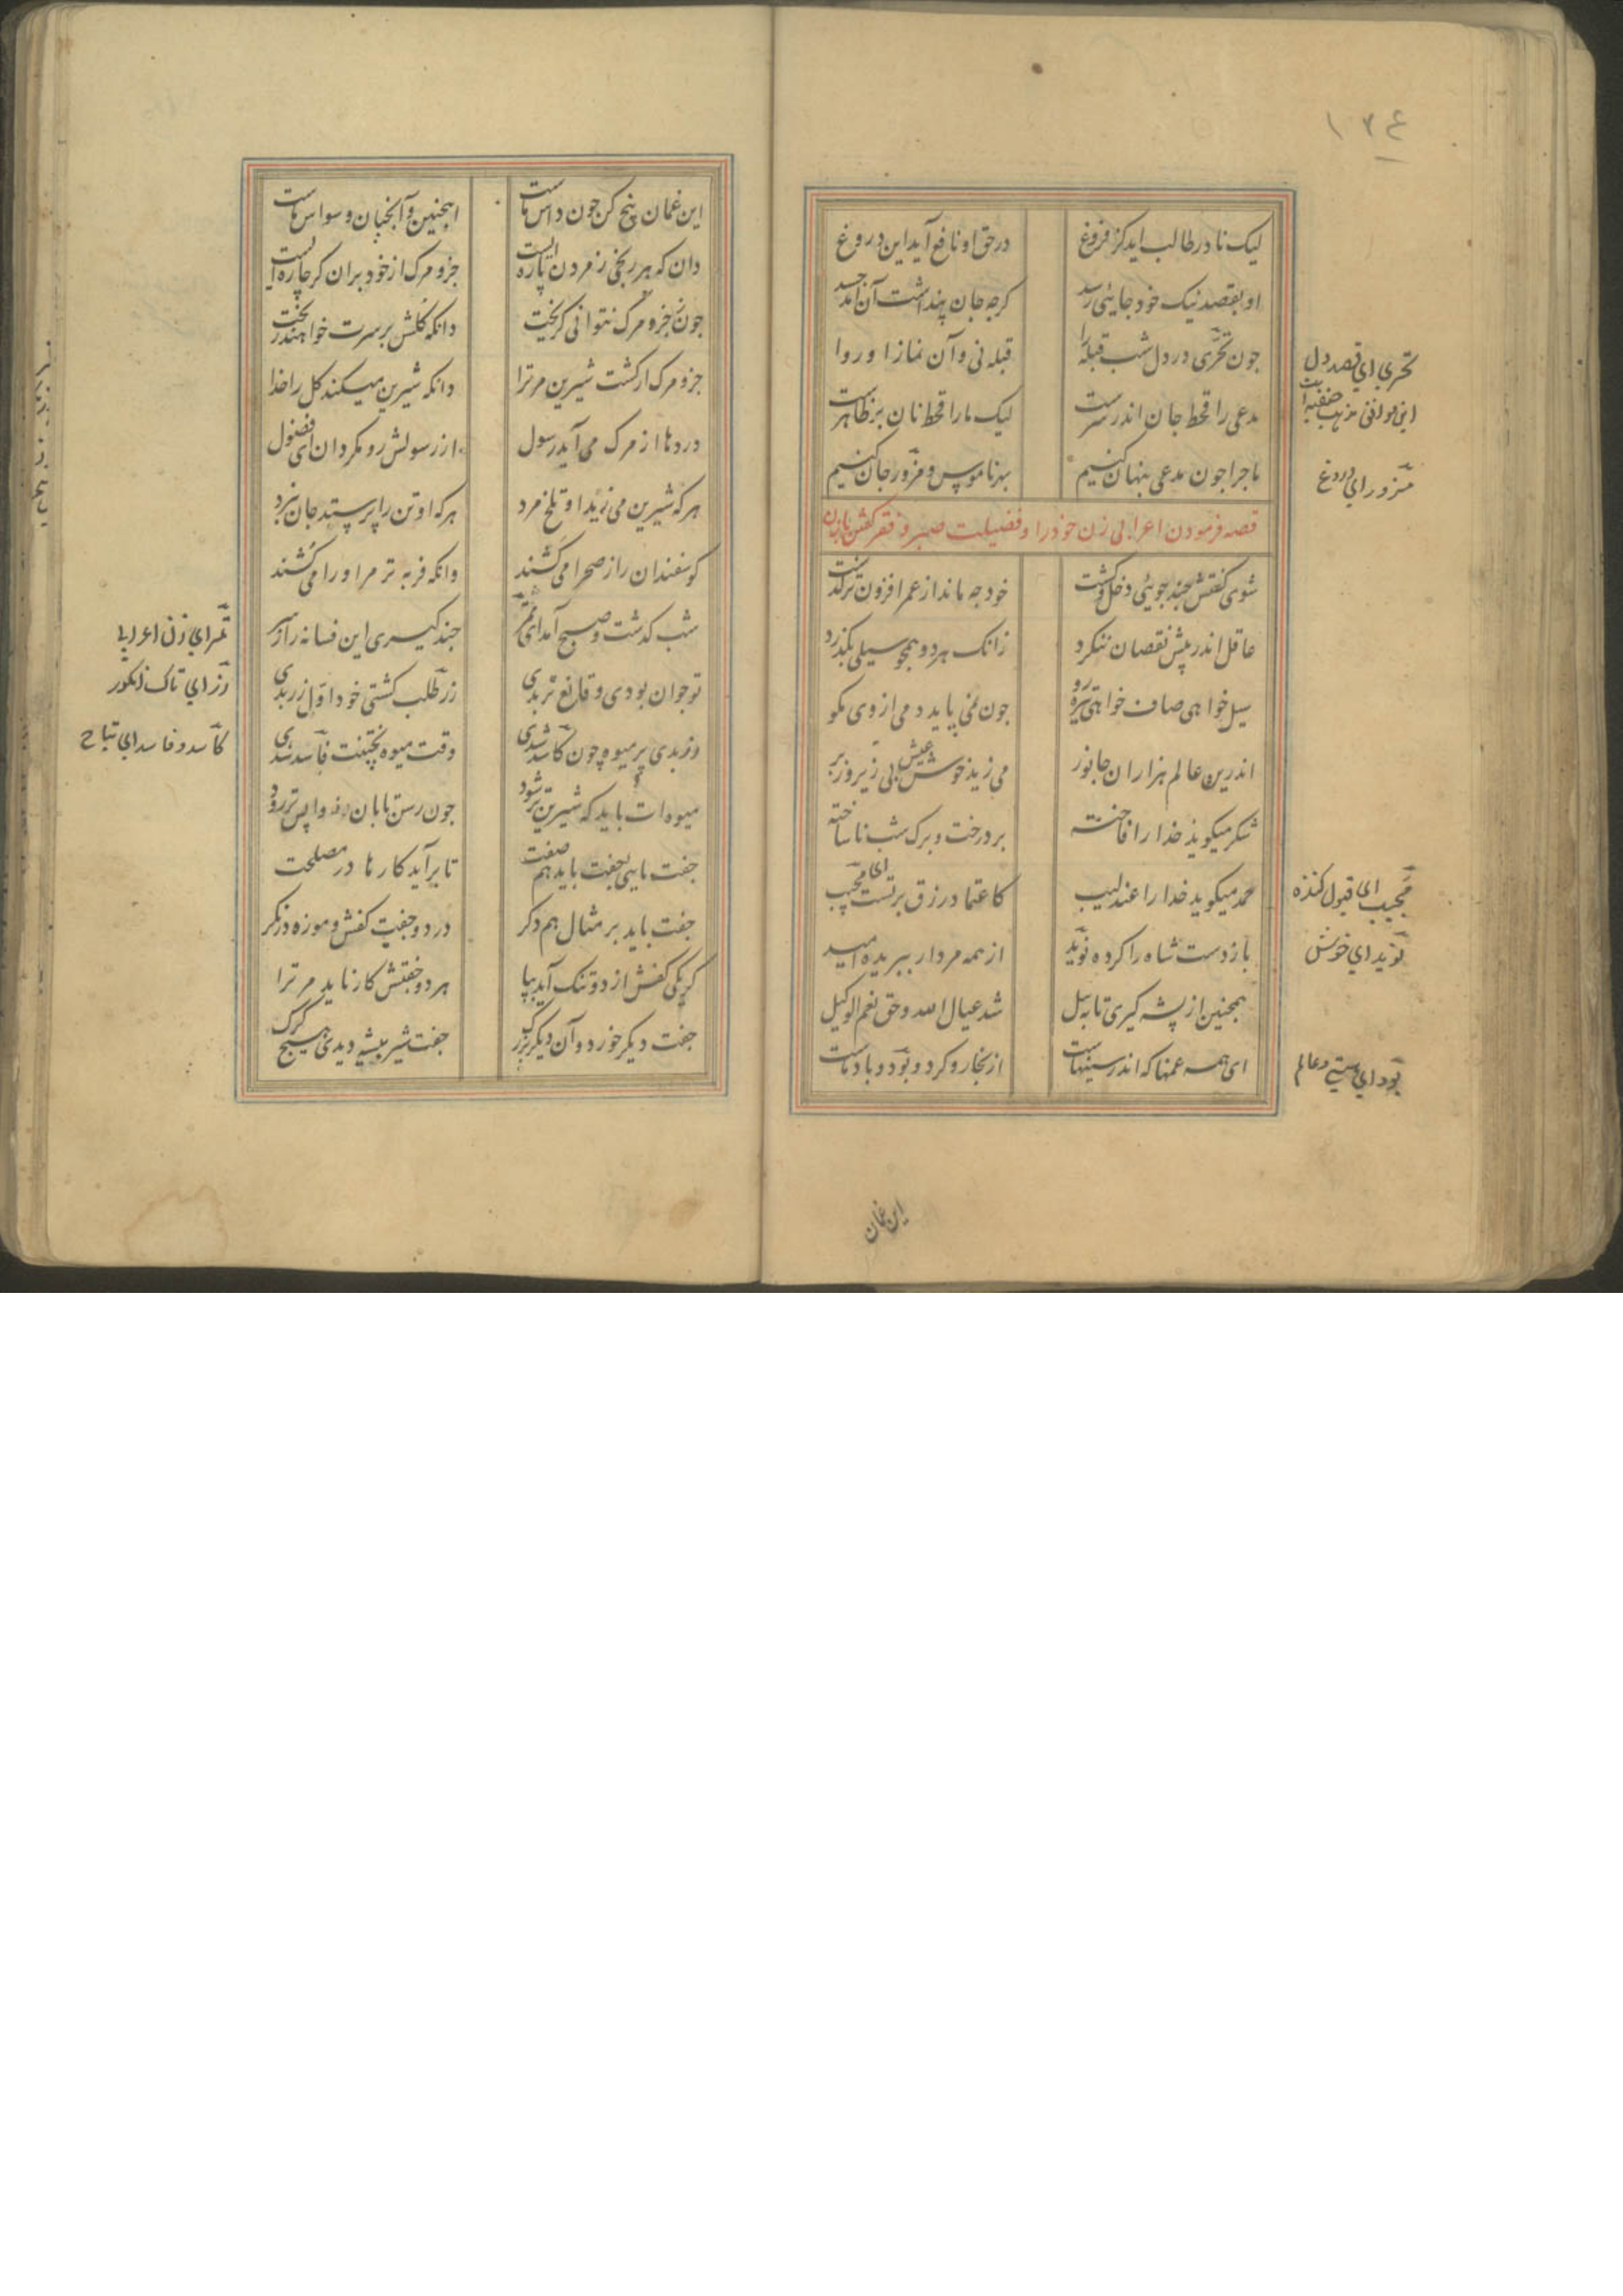 ۱۳۴
لیک نادر طالب اید کز فروغ
در حق او نافع آید این دروغ
او بقصد نیک خود جایی رسد
کرچه جان پنداشت آن آمد جسد
چون تحری در دل شب قبله را
قبله نی و آن نماز او روا
مدعی را قحط جان اندر سرست
لیک ما را قحط نان بر ظاهرست
ما جرا چون مدعی پنهان کنیم
بهر ناموس و مزور جان کنیم
قصه فرمودن اعرابی زن خود را و فضیلت صبر و فقر کفتن با زن
شوی کفتش چند جویی دخل و کشت
خود چه ماند از عمر افزون تر کذشت
عاقل اندر بیش نقصان ننکرد
زانک هر دو همچو سیلی بکذرد
سیل خواهی صاف خواهی تیره رو
چون نمی پاید دمی از وی مکو
اندرین عالم هزاران جانور
می زید خوش عیش بی زیر و زبر
شکر میکوید خدا را فاخته
بر درخت و برک شب ناساخته
حمد میکوید خدا را عندلیب
کاعتماد رزق بر تست ای مجیب
باز دست شاه را کرده نوید
از همه مردار ببریده امید
همچنین از پشه کیری تا به پیل
شد عیال الله و حق نعم الوکیل
ای همه غمها که اندر سینهاست
از بخار و کرد و بود و باد ماست
تحری ای قصد دل
این موافق مذهب حنفیه است
مزور ای دروغ
مجیب ای قبول کننده
نوید ای خوش
بود ای هستی و عالم
این غمان
این غمان بیخ کن چون داس ماست
اینچنین و آنچنان وسواس ماست
دان که هر رنجی ز مردن پاره ایست
جزو مرک از خود بران کر چاره ایست
چون ز جزو مرک نتوانی کریخت
دانکه کلش بر سرت خواهند ریخت
جزو مرک ار کشت شیرین مر ترا
دانکه شیرین میکند کل را خدا
دردها از مرک می آید رسول
از رسولش رو مکردان ای فضول
هر که شیرین می زید او تلخ مرد
هر که او تن را پرستد جان نبرد
کوسفندان را ز صحرا می کشند
وانکه فربه تر مر او را می کشند
شب کذشت و صبح آمد ای تمر
چند کیری این فسانه را ز سر
تو جوان بودی و قانع تر بدی
زر طلب کشتی خود اول زر بدی
رز بدی پر میوه چون کاسد شدی
وقت میوه پختنت فاسد شدی
میوه ات باید که شیرین تر شود
چون رسن تابان نه واپس تر رود
جفت مایی جفت باید هم صفت
تا برآید کارها در مصلحت
جفت باید بر مثال هم دکر
در دو جفت کفش و موزه در نکر
کر یکی کفش از دو تنک آید بپا
هر دو جفتش کار ناید مر ترا
جفت دیکر خورد و آن دیکر بزرک
جفت شیر بیشه دیدی هیچ کرک
تمر ای زن اعرابی
رز ای تاک انکور
کاسد و فاسد ای تباح